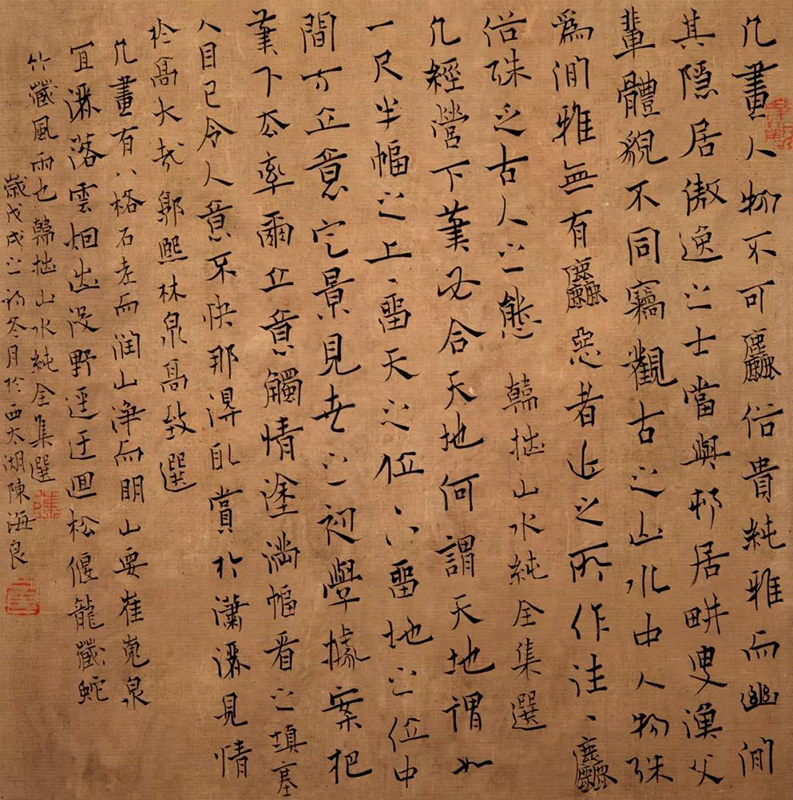 凡畫人物不可麤俗貴純雅而幽閒
其隱居傲逸之士當與邨居畊叟漁父
輩體貌不同竊觀古之山水中人物殊
爲閒雅無有麤惡者近之所作往〻麤
俗殊乏古人之態 韓拙山水純全集選
凡經營下筆必合天地何謂天地謂如
一尺半幅之上〻留天之位下留地之位中
間方立意定景見世之初學據案把
筆下去率爾立意觸情塗滿幅看之填塞
人目已令人意不快那得取賞於瀟灑見情
於高大哉 郭熙林泉高致選
凡畫有八格石老而潤山淨而明山要崔嵬泉
宜灑落雲烟出沒野逕迂迴松偃龍藏蛇
竹藏風雨也 韓拙山水純全集選
歲戊戌之初冬月於西太湖陳海良